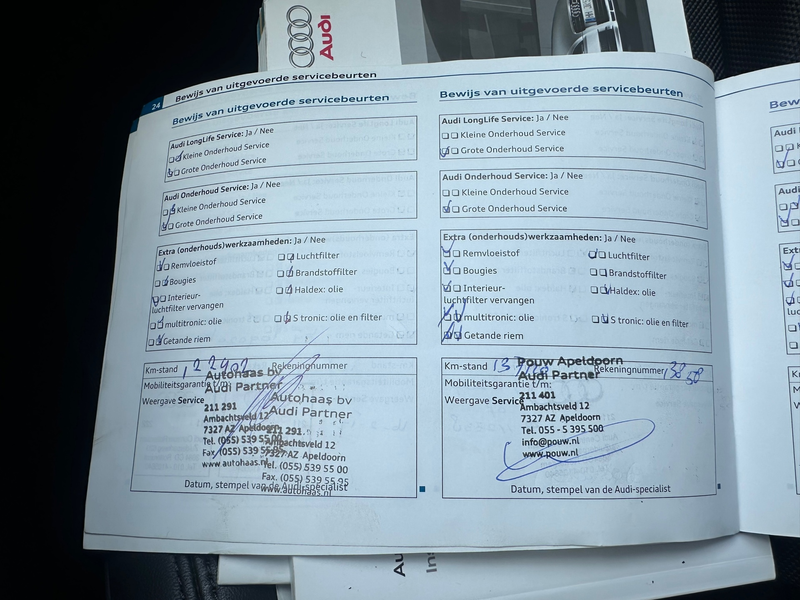 Audi
24
Bewijs van uitgevoerde servicebeurten
Bewijs van uitgevoerde servicebeurten
Audi LongLife Service: Ja / Nee
Kleine Onderhoud Service
Grote Onderhoud Service
Audi Onderhoud Service: Ja / Nee
Kleine Onderhoud Service
Grote Onderhoud Service
Extra (onderhouds)werkzaamheden: Ja / Nee
Remvloeistof
Luchtfilter
Bougies
Brandstoffilter
Interieur-
luchtfilter vervangen
Haldex: olie
multitronic: olie
S tronic: olie en filter
Getande riem
Km-stand
Rekeningnummer
Mobiliteitsgarantie t/m:
Weergave Service
Autohaas bv
Audi Partner
211 291
Ambachtsveld 12
7327 AZ Apeldoorn
Tel. (055) 539 55 00
Fax (055) 539 55 95
www.autohaas.nl
Autohaas bv
Audi Partner
211 291
Ambachtsveld 12
7327 AZ Apeldoorn
Tel. (055) 539 55 00
Fax. (055) 539 55 95
www.autohaas.nl
Datum, stempel van de Audi-specialist
Bewijs van uitgevoerde servicebeurten
Audi LongLife Service: Ja / Nee
Kleine Onderhoud Service
Grote Onderhoud Service
Audi Onderhoud Service: Ja / Nee
Kleine Onderhoud Service
Grote Onderhoud Service
Extra (onderhouds)werkzaamheden: Ja / Nee
Remvloeistof
Luchtfilter
Bougies
Brandstoffilter
Interieur-
luchtfilter vervangen
Haldex: olie
multitronic: olie
S tronic: olie en filter
Getande riem
Km-stand
Rekeningnummer
Mobiliteitsgarantie t/m:
Weergave Service
Pouw Apeldoorn
Audi Partner
211 401
Ambachtsveld 12
7327 AZ Apeldoorn
Tel. 055 - 5 395 500
info@pouw.nl
www.pouw.nl
Datum, stempel van de Audi-specialist